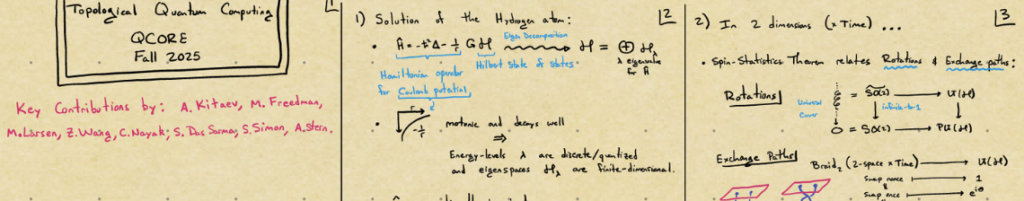 Topological Quantum Computing
QCORE
Fall 2025
Key Contributions by: A. Kitaev, M. Freedman,
M. Larsen, Z. Wang, C. Nayak, S. Das Sarma, S. Simon, A. Stern.
1
1) Solution of the Hydrogen atom:
2
• Ĥ = -ℏ²Δ - 1/r G ℋ
Eigen Decomposition
ℋ = ⊕ ℋ_λ
λ eigenvalue
for Ĥ
Hamiltonian operator
for Coulomb potential
Hilbert State of states.
r
-1/r
motonic and decays well
⇒
Energy-levels λ are discrete/quantized
and eigenspaces ℋ_λ are finite-dimensional.
2) In 2 dimensions (x Time) ...
3
• Spin-Statistics Theorem relates Rotations & Exchange paths:
Rotations
Universal
Cover
= S̃O(2) → U(ℋ)
infinite-to-1
= SO(2) → PU(ℋ)
Exchange Paths
Braid₂ (2-space x Time) → U(ℋ)
Swap none ↦ 1
Swap once ↦ e^{iθ}